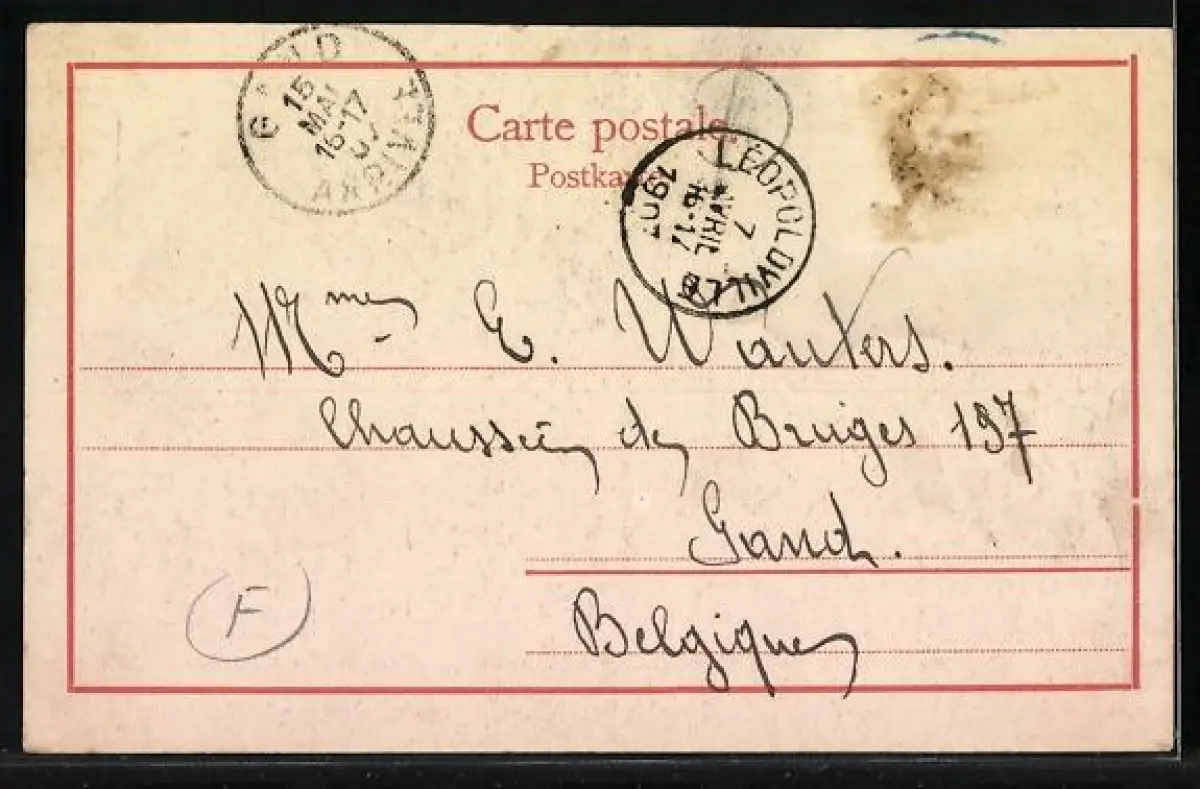 GAND
15
MAI
16-17
07
ARRIVÉE
Carte postale
Postkarte
LÉOPOLDVILLE
7
AVRIL
16-17
1907
Mme E. Wauters.
Chaussée de Bruges 197
Gand.
Belgique
F